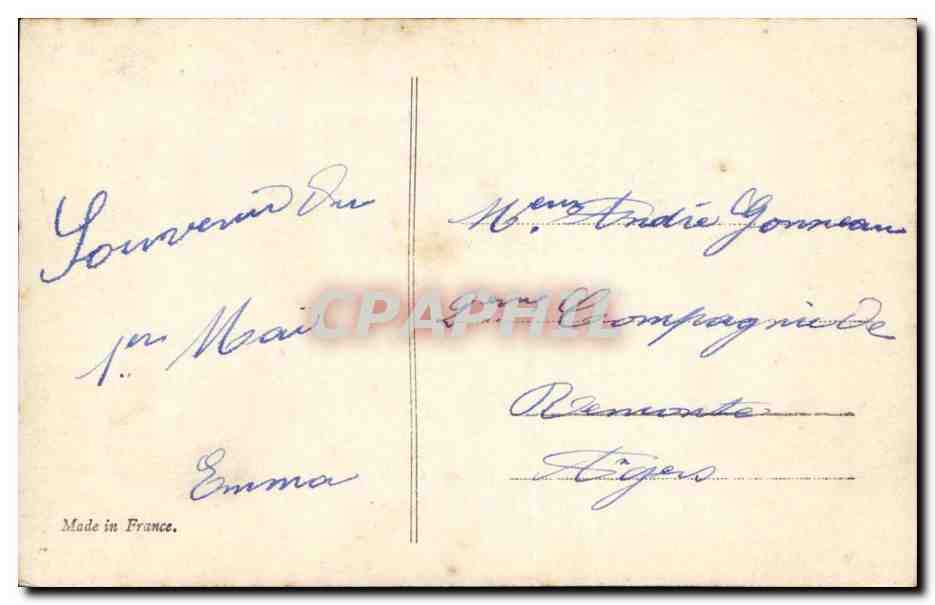 Souvenir du
1er Mai
Emma
Made in France.
Mr. André Gonneau
2ème Compagnie de
Remonte
CPAPHIL